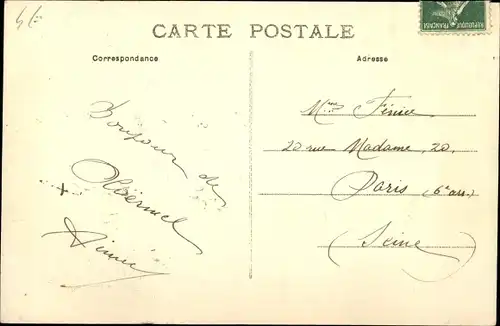 CARTE POSTALE
Correspondance
Bonjour de
Aimée
Adresse
Mme Fénice
20 rue Madame, 20.
Paris (6e arr.)
(Seine)
REPUBLIQUE
FRANÇAISE